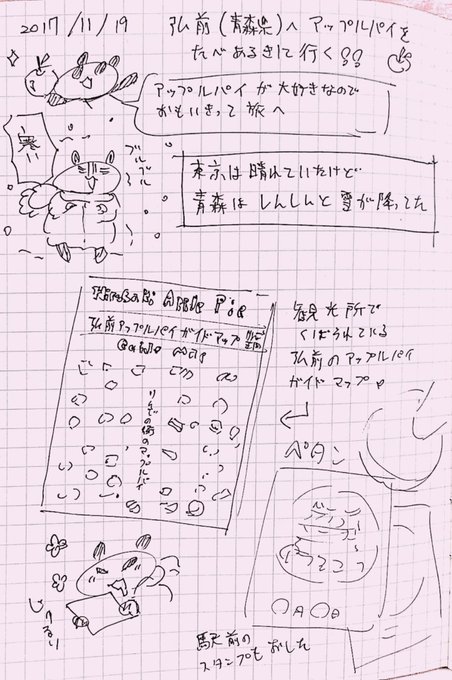 2017/11/19
弘前(青森県)へ アップルパイを
たべあるきして行く!!
アップルパイが大好きなので
おもいきって 旅へ
寒い
ブルブル
東京は晴れていたけど
青森は しんしんと 雪が降ってた
Hirosaki Apple Pie
弘前アップルパイガイドマップ
Guide Map
りんごの街のアップルパイ
観光所で
くばられている
弘前のアップルパイ
ガイドマップ
ペタン
駅前の
スタンプもおした